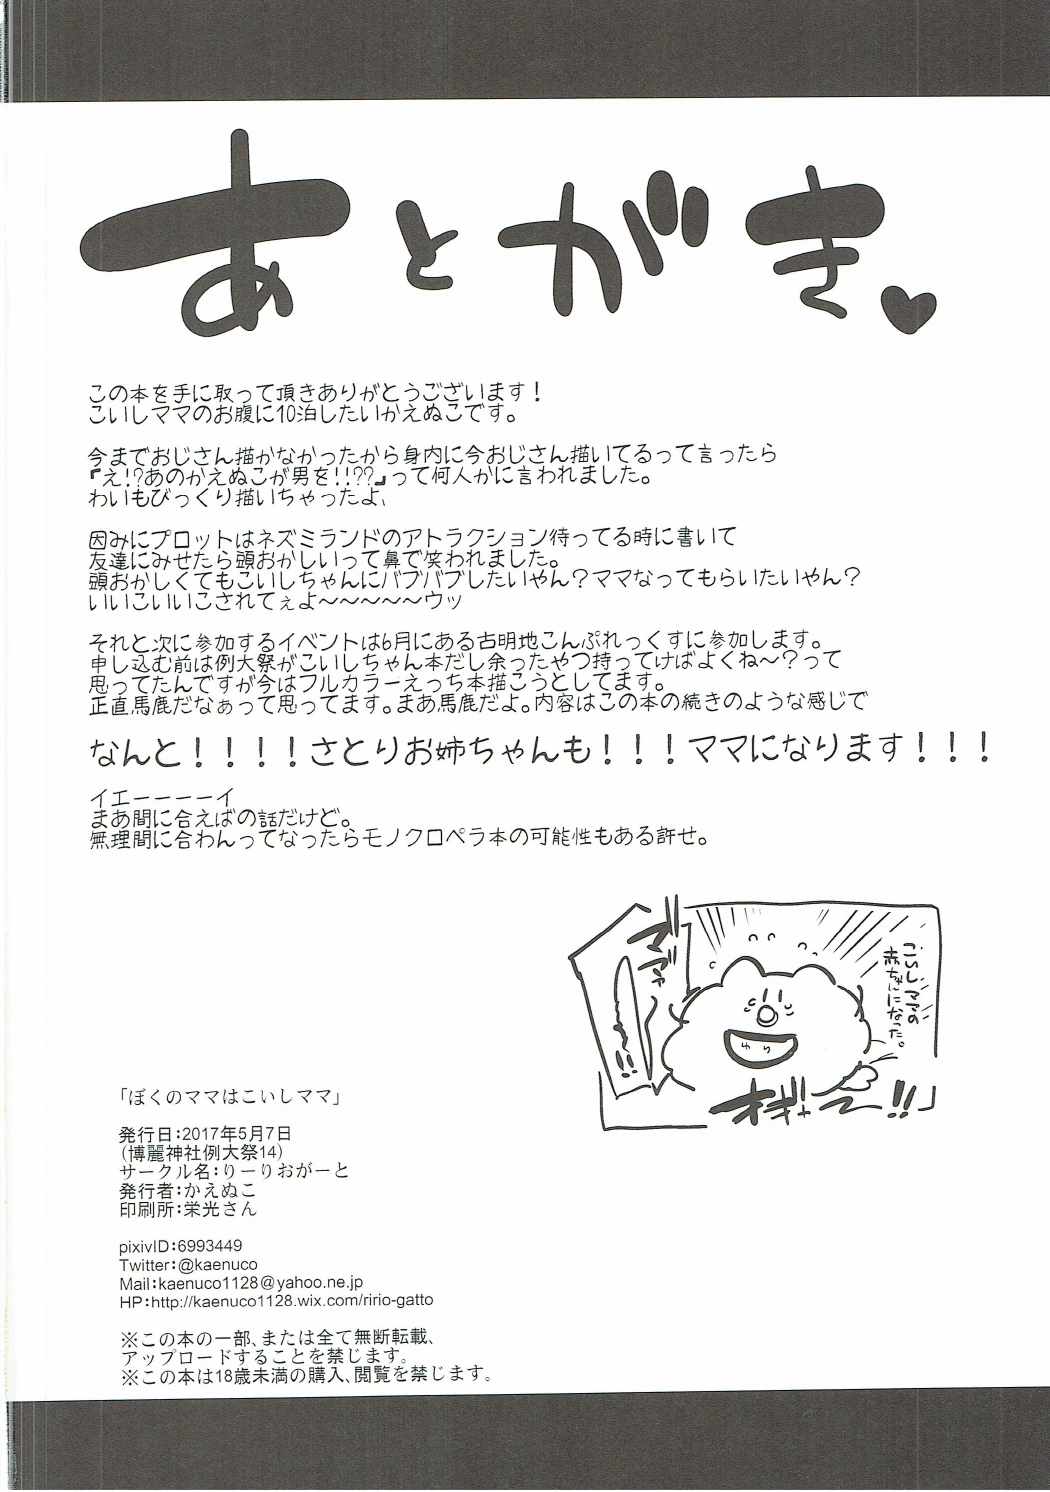 あとがき♥
この本を手に取って頂きありがとうございます！
こいしママのお腹に10泊したいかえぬこです。
今までおじさん描かなかったから身内に今おじさん描いてるって言ったら
『え!?あのかえぬこが男を!!??』って何人かに言われました。
わいもびっくり描いちゃったよ、
因みにプロットはネズミランドのアトラクション待ってる時に書いて
友達にみせたら頭おかしいって鼻で笑われました。
頭おかしくてもこいしちゃんにバブバブしたいやん？ママなってもらいたいやん？
いいこいいこされてぇよ〜〜〜〜〜ウッ
それと次に参加するイベントは6月にある古明地こんぷれっくすに参加します。
申し込む前は例大祭がこいしちゃん本だし余ったやつ持ってけばよくね〜？って
思ってたんですが今はフルカラーえっち本描こうとしてます。
正直馬鹿だなぁって思ってます。まあ馬鹿だよ。内容はこの本の続きのような感じで
なんと！！！！さとりお姉ちゃんも！！！ママになります！！！
イエーーーーイ
まあ間に合えばの話だけど。
無理間に合わんってなったらモノクロペラ本の可能性もある許せ。
こいしママの
赤ちゃんになった。
マ゛マ゛ァ
ー〜!!
ゆら
オギャー!!
「ぼくのママはこいしママ」
発行日：2017年5月7日
（博麗神社例大祭14）
サークル名：りーりおがーと
発行者：かえぬこ
印刷所：栄光さん
pixivID：6993449
Twitter：@kaenuco
Mail：kaenuco1128@yahoo.ne.jp
HP：http://kaenuco1128.wix.com/ririo-gatto
※この本の一部、または全て無断転載、
アップロードすることを禁じます。
※この本は18歳未満の購入、閲覧を禁じます。